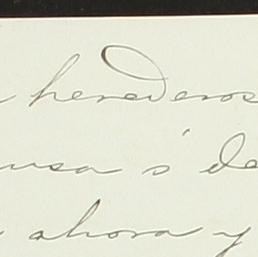 herederos
usa o' de
ahora y